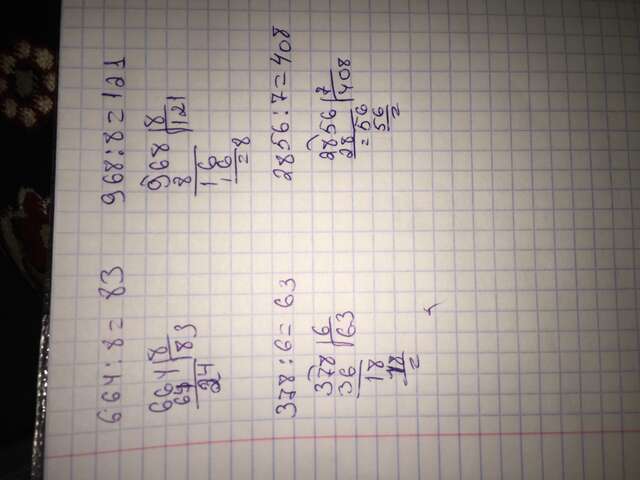 664:8= 83
968:8=121
664 8
64 83
24
968 8
8 121
16
16
=8
378:6= 63
2856:7=408
378 6
36 63
18
18
=
2856 7
28 408
=56
56
=